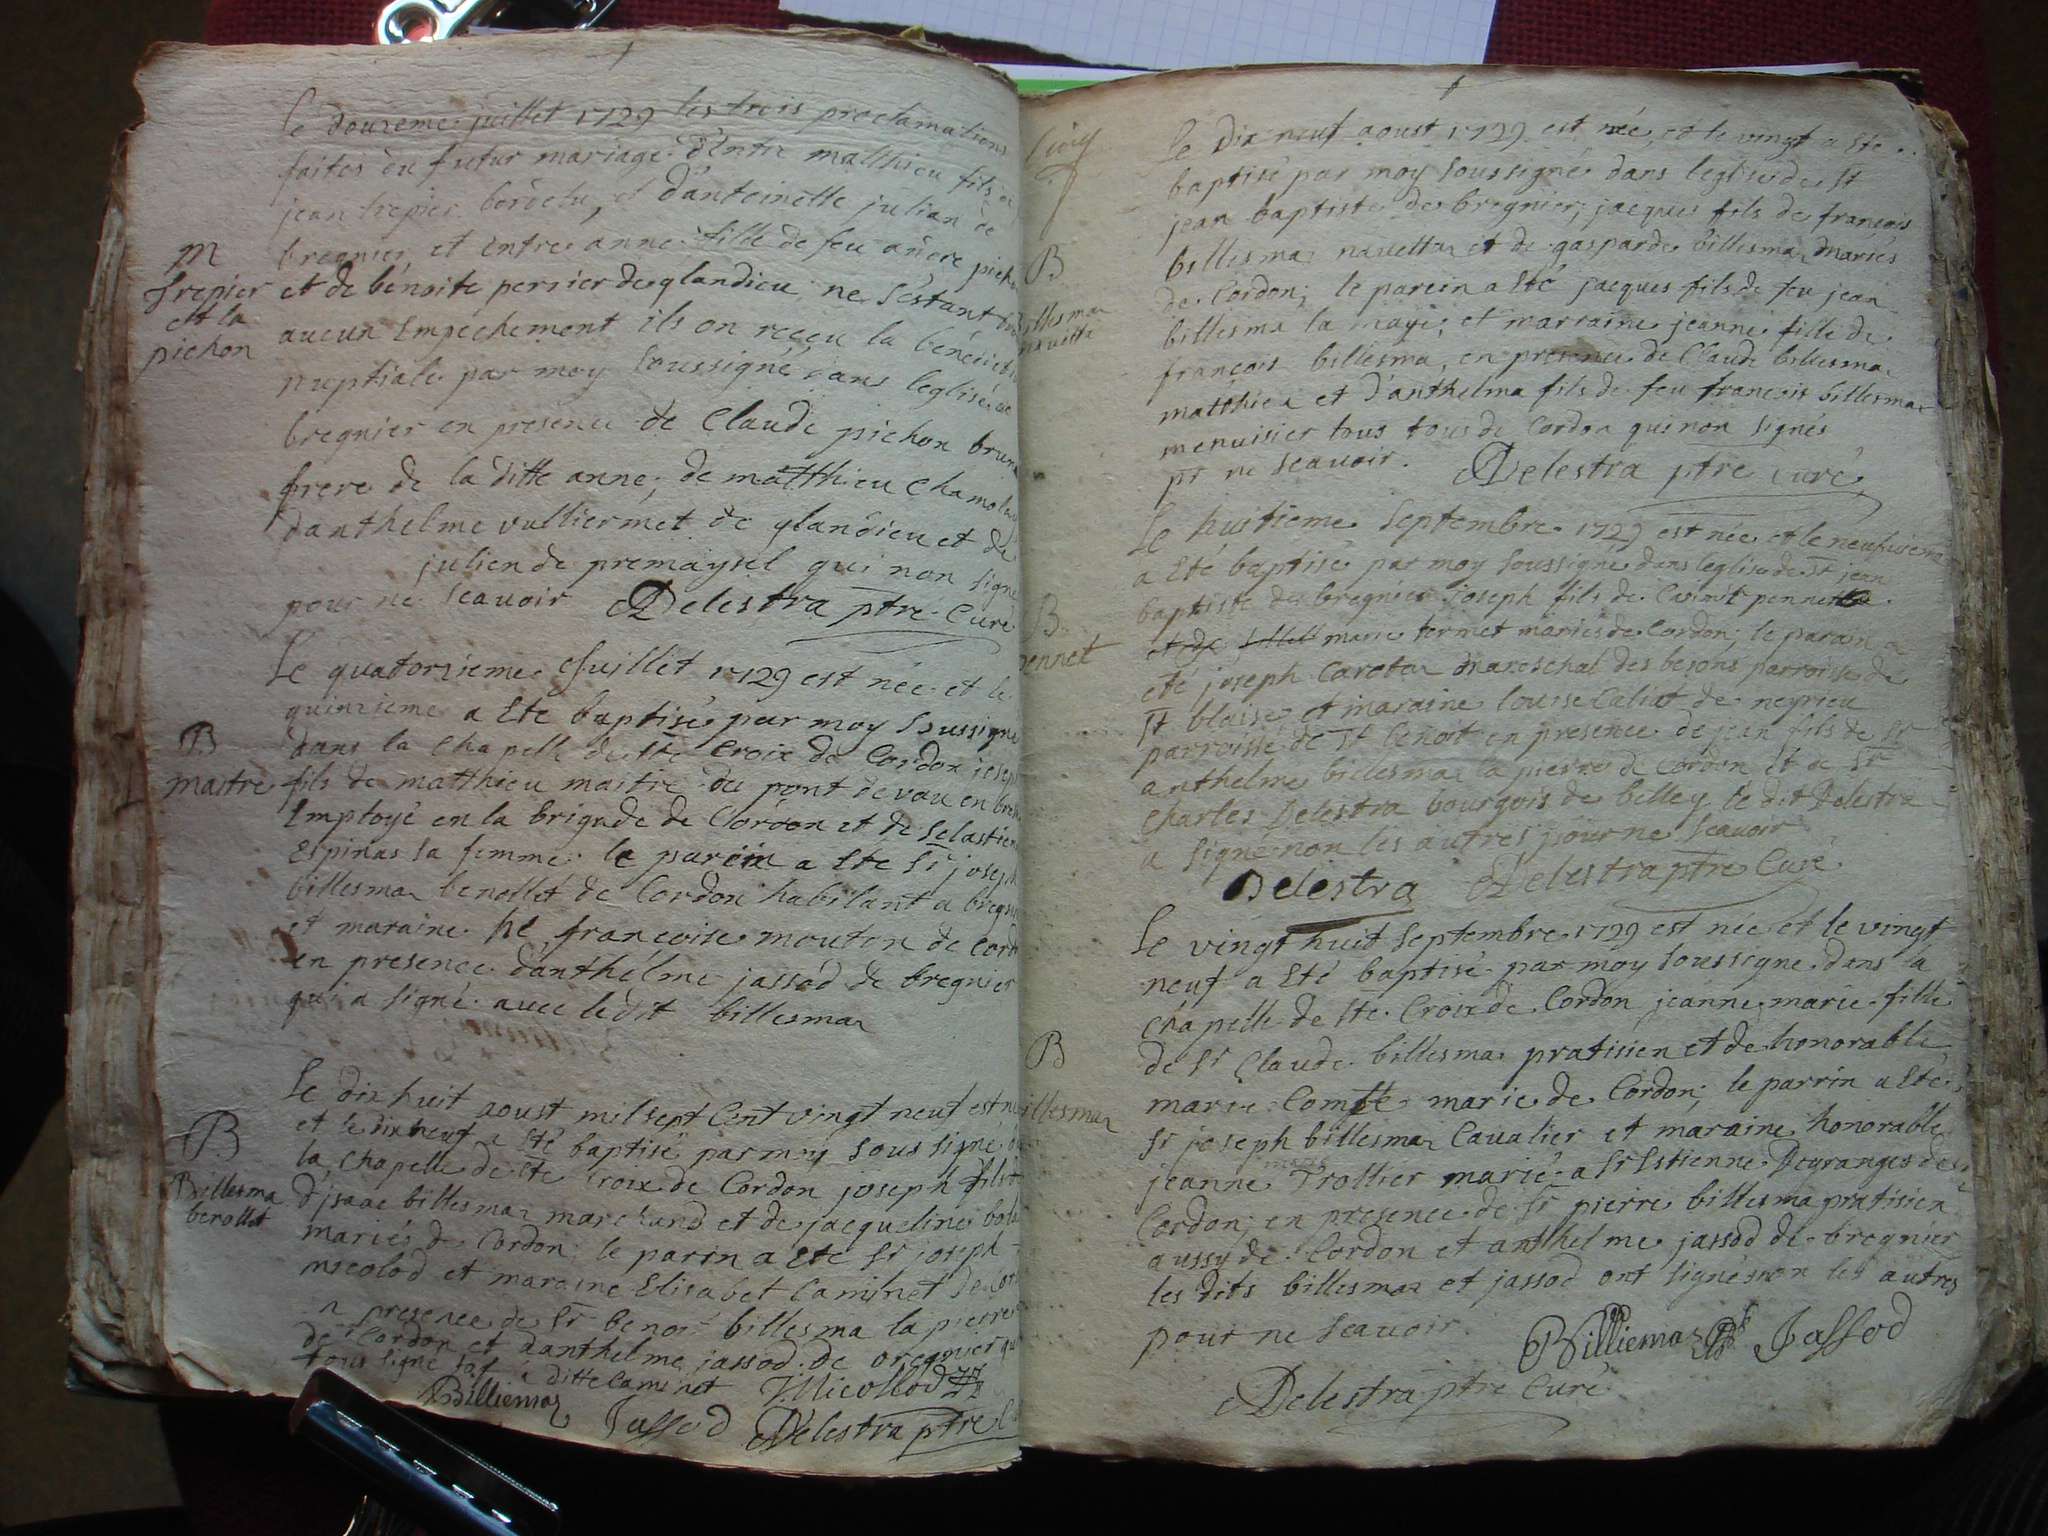 Le douzeme juillet 1729 les trois proclamations
faites du futur mariage d'entre matthieu fils de
jean trepier bordelu, et d'antoinette julian de
bregnier, et entre anne fille de feu andre
et de bénoite perrier de glandieu ne s'éstant
aucun Empechement ils on reçeu la
nuptiale par moy Soussigné dans leglise de
bregnier en presence de Claude pichon
frere de la ditte anne, de matthieu
danthelme vulliermet de glandieu et de
julien de premaysel qui non signe
pour ne scavoir Delestra ptre Curé
M
trepier
et la
pichon
Le quatorzieme Juillet 1729 est née et le
quinzieme a Ete baptisé par moy Soussigne
dans la Chapelle de Ste Croix de Cordon joseph
fils de matthieu maitre du pont de vau en
Employé en la brigade de Cordon et de
Espinas sa femme le parein a Ete Sr joseph
billesmaz benollet de Cordon habitant a
et maraine françoise mouton de
en presence d'anthélme jassod de bregnier
qui a signé avec ledit billesmaz
B
maitre
Le dix huit aoust mil sept Cent vingt neuf est
et le dix neuf a Eté baptisé par moy sous signé
la Chapelle de Ste Croix de Cordon joseph fils
d'jsaac billesmaz marchand et de jacqueline
mariés de Cordon le parin a Ete Sr joseph
nicolod et maraine Elisabet Caminet
presence de Sr benoit billesma la pierre
de Cordon et danthelme jassod de bregnier
tous signé ditte Caminet
Billiemaz Jassod JNicollod Delestra ptre
B
Billesma
berollet
Le Dix neuf aoust 1729 est née, et le vingt a Ete
baptisé par moy soussigné dans leglise de St
jean baptiste de bregnier, jacques fils de françois
billesmaz navettaz et de gasparde billesmaz mariés
de Cordon; le parein a Eté jacques fils de feu jean
billesma la maye, et marraine jeanne fille de
françois billesma, en presence de Claude billesmaz
matthieu et d'anthelma fils de feu françois billesmaz
menuisier tous tous de Cordon qui non signés
pr ne scavoir. Delestra ptre Curé
B
Le huitieme Septembre 1729 est née et le neufvieme
a Eté baptisé par moy soussigné dans leglise de St jean
baptiste de bregnier Joseph fils de pennet
marie termet mariés de Cordon; le parain a
eté joseph mareschal des parroisse de
St blaise et maraine louise de neyrieu
parroisse de St benoit en presence de jean fils de Sr
anthelme billesmaz la pierre de Cordon et de Sr
Charles Delestra bourgois de belley le dit Delestra
a signé non les autres pour ne scavoir
Delestra Delestra ptre Curé
B
pennet
Le vingt huit Septembre 1729 est née et le vingt
neuf a Eté baptisé par moy soussigné dans la
Chapelle de Ste Croix de Cordon jeanne marie fille
de Sr Claude billesmaz pratisien et de honorable
marie Comte marié de Cordon; le parrin a Eté
Sr joseph billesmaz Cavalier et maraine honorable
jeanne Trollier marié a Sr Estienne Deyranges de
Cordon; en presence de Sr pierre billesma pratisien
aussy de Cordon et anthelme jassod de bregnier
les dits billesmaz et jassod ont signés non les autres
pour ne scavoir Billiemaz Jassod
Delestra ptre Curé
B
illesmaz